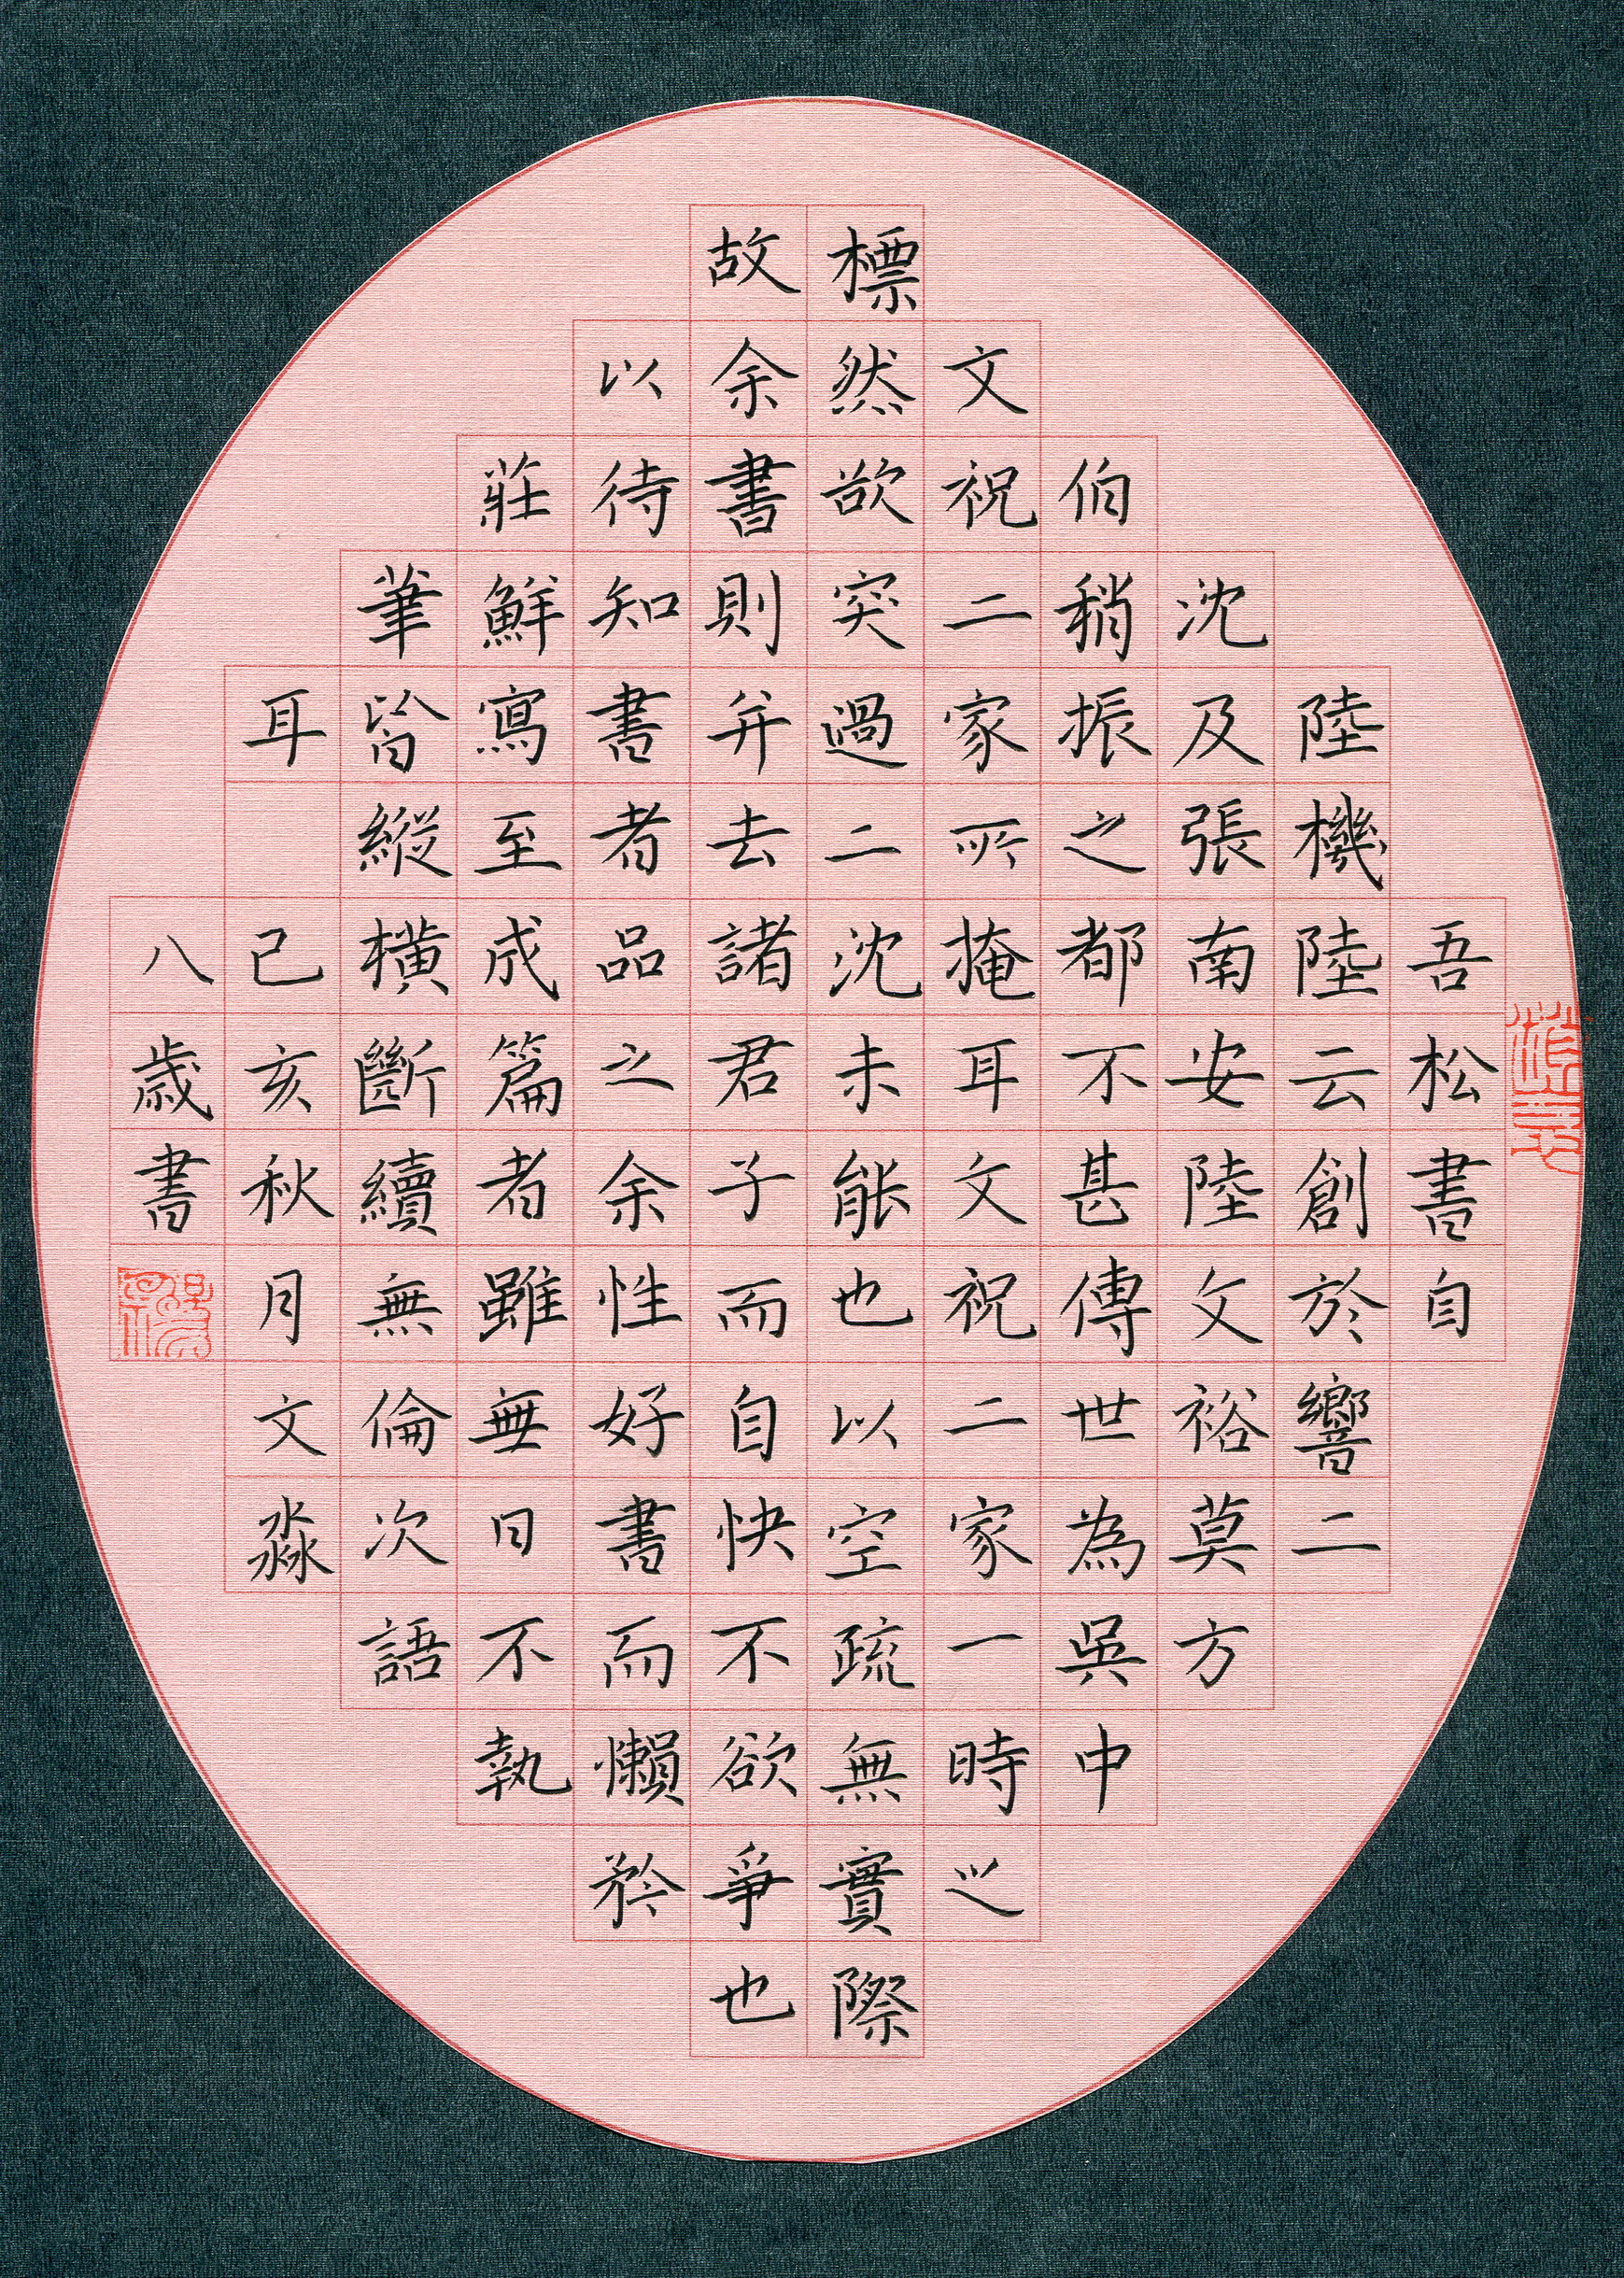 吾松書自
陸機陸云創於響二
沈及張南安陸文裕莫方
伯稍振之都不甚傳世為吳中
文祝二家所掩耳文祝二家一時之
標然欲突過二沈未能也以空疏無實際
故余書則并去諸君子而自快不欲爭也
以待知書者品之余性好書而懶矜
莊鮮寫至成篇者雖無日不執
筆皆縱橫斷續無倫次語
耳 己亥秋月文淼
八歳書